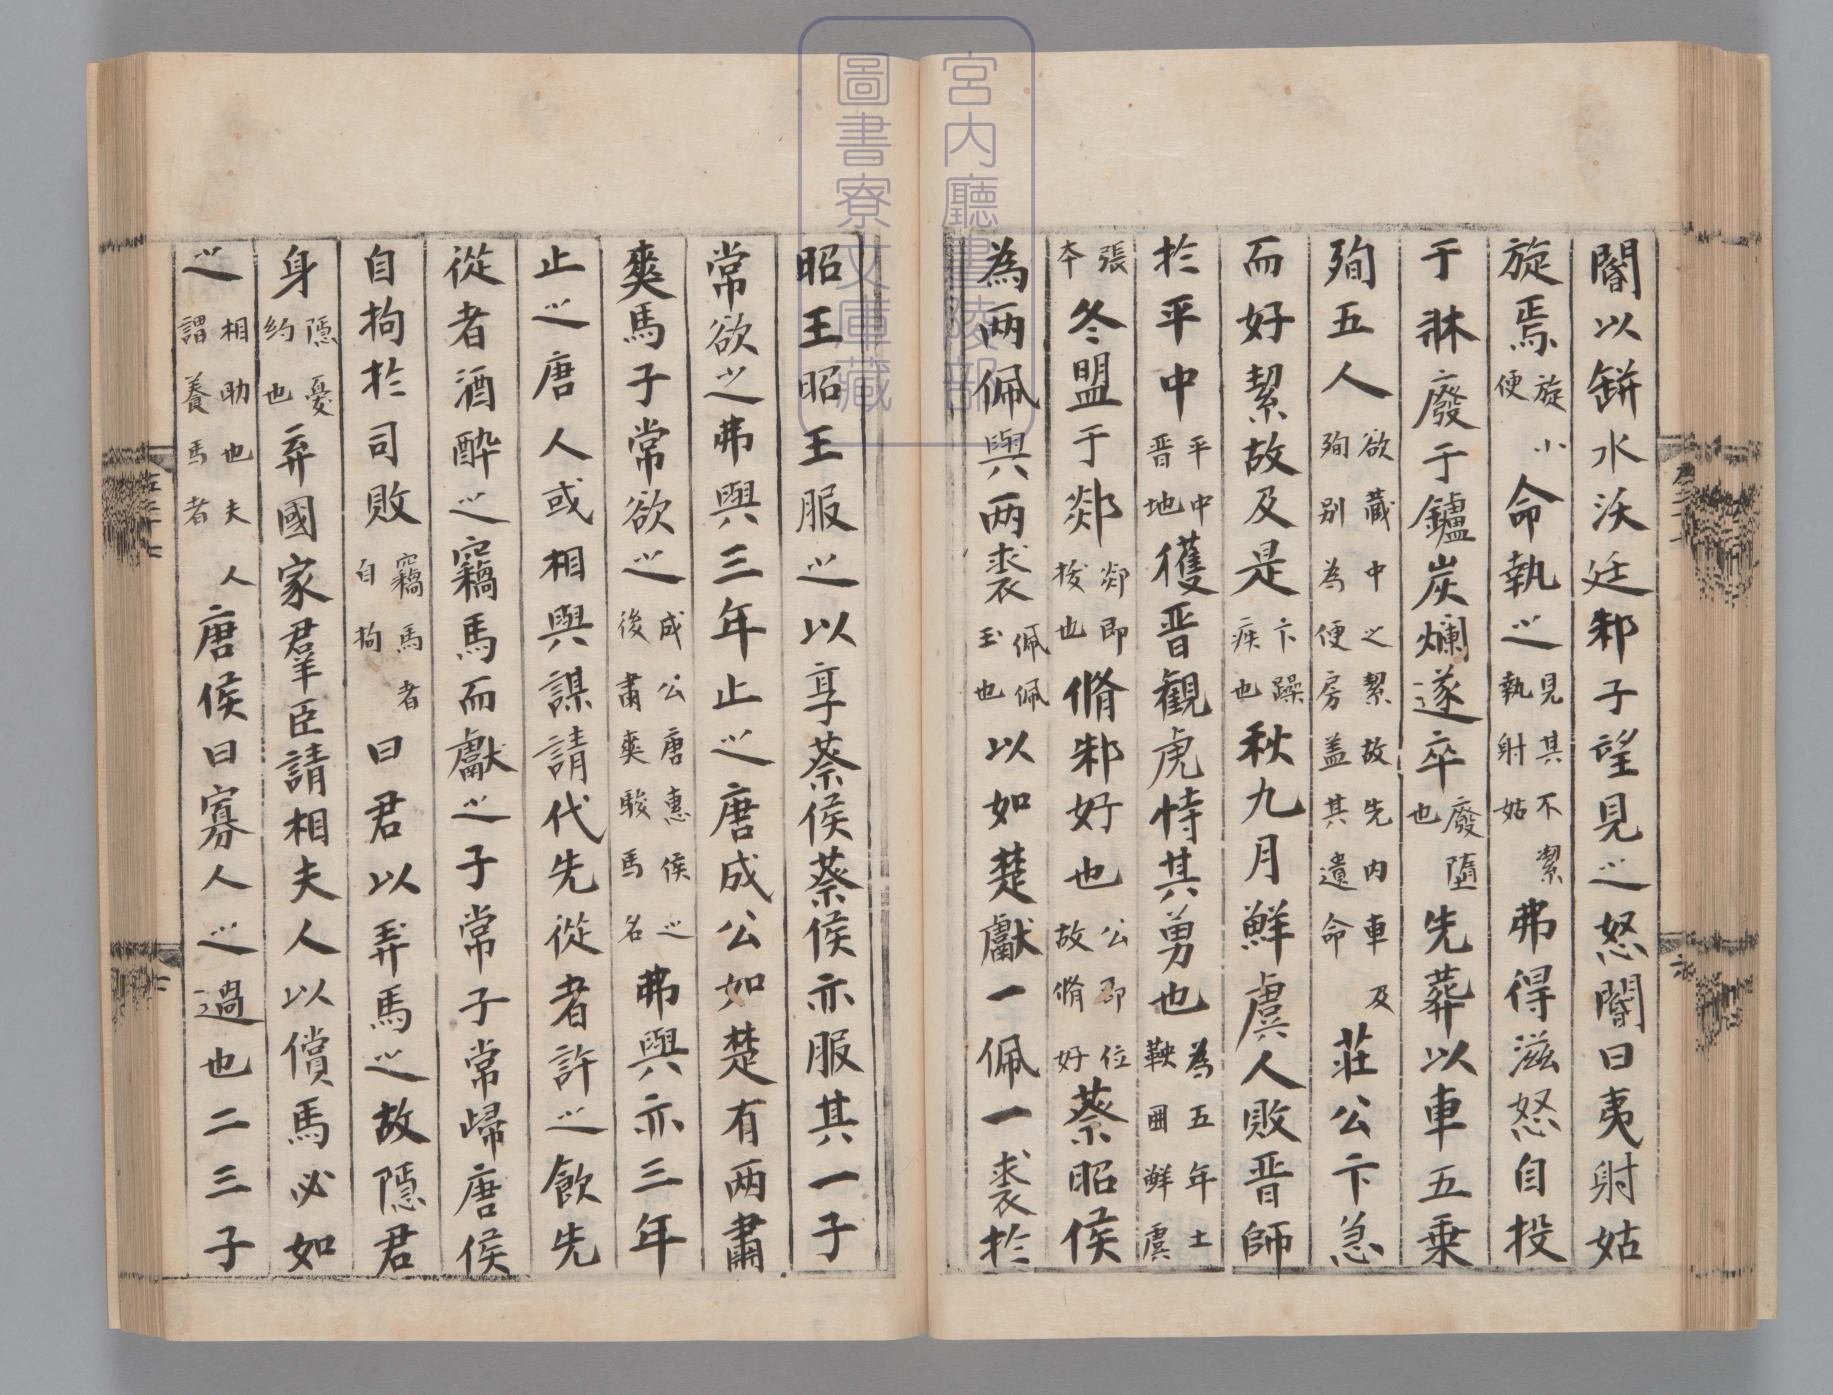 閽以缾水沃廷邾子望見之怒閽曰夷射姑
旋焉旋小便命執之見其不絜執射姑弗得滋怒自投
于牀廢于鑪炭爛遂卒廢墮也先葬以車五乗
殉五人欲藏中之絜故先内車及殉别為便房盖其遺命荘公卞急
而好絜故及是卞躁疾也秋九月鮮虞人敗晋師
扵平中平中晋地獲晋觀虎恃其勇也為五年士鞅囲鮮虞
張本冬盟于郯郯即拔也脩邾好也公即位故脩好蔡昭侯
為兩佩與兩裘佩佩玉也以如楚獻一佩一裘扵
昭王昭王服之以享蔡侯蔡侯亦服其一子
常欲之弗與三年止之唐成公如楚有兩肅
爽馬子常欲之成公唐惠侯之後肅爽駿馬名弗與亦三年
止之唐人或相與謀請代先從者許之飲先
從者酒酔之竊馬而獻之子常子常歸唐侯
自拘扵司敗竊馬者自拘曰君以弄馬之故隱君
身隱憂約也弃國家羣臣請相夫人以償馬必如
之相助也夫人謂養馬者唐侯曰寡人之過也二三子
宮内廳書陵部
圖書寮文庫藏